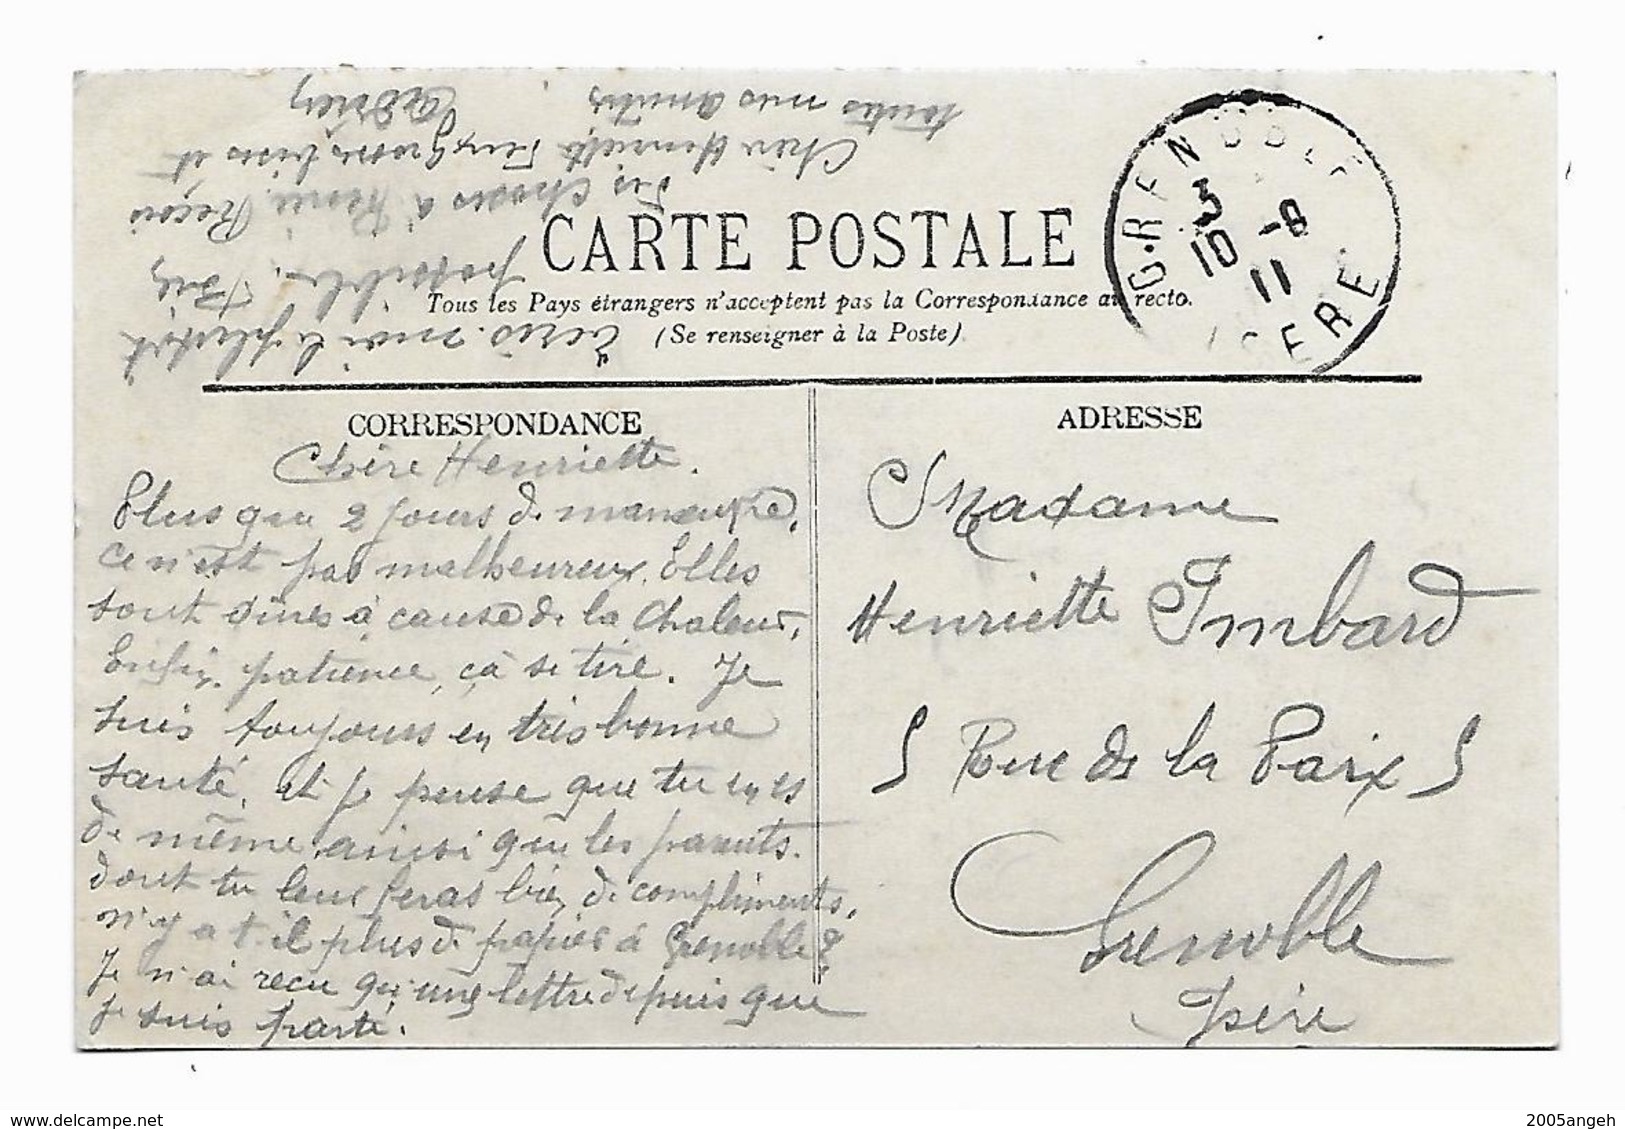 CARTE POSTALE
Tous les Pays étrangers n'acceptent pas la Correspondance au recto.
(Se renseigner à la Poste)
GRENOBLE
3
10 -8
11
ISERE
CORRESPONDANCE
Chère Henriette.
Plus que 2 jours de manœuvre,
ce n'est pas malheureux. Elles
sont dures à cause de la chaleur,
Enfin, patience, ça se tire. Je
suis toujours en très bonne
santé, et je pense que tu en es
de même, ainsi que les parents.
dont tu leur feras bien de compliments,
n'y a t-il plus de papier à Grenoble?
Je n'ai reçu qu'une lettre depuis que
je suis parti.
Ecris-moi le plustôt
possible. Bien
des choses à Reçois
Chère Henriette grosses bises et
toutes mes amitiés
Adrien
ADRESSE
Madame
Henriette Imbard
5 Rue de la Paix 5
Grenoble
Isère
delcampe.net
2005angeh